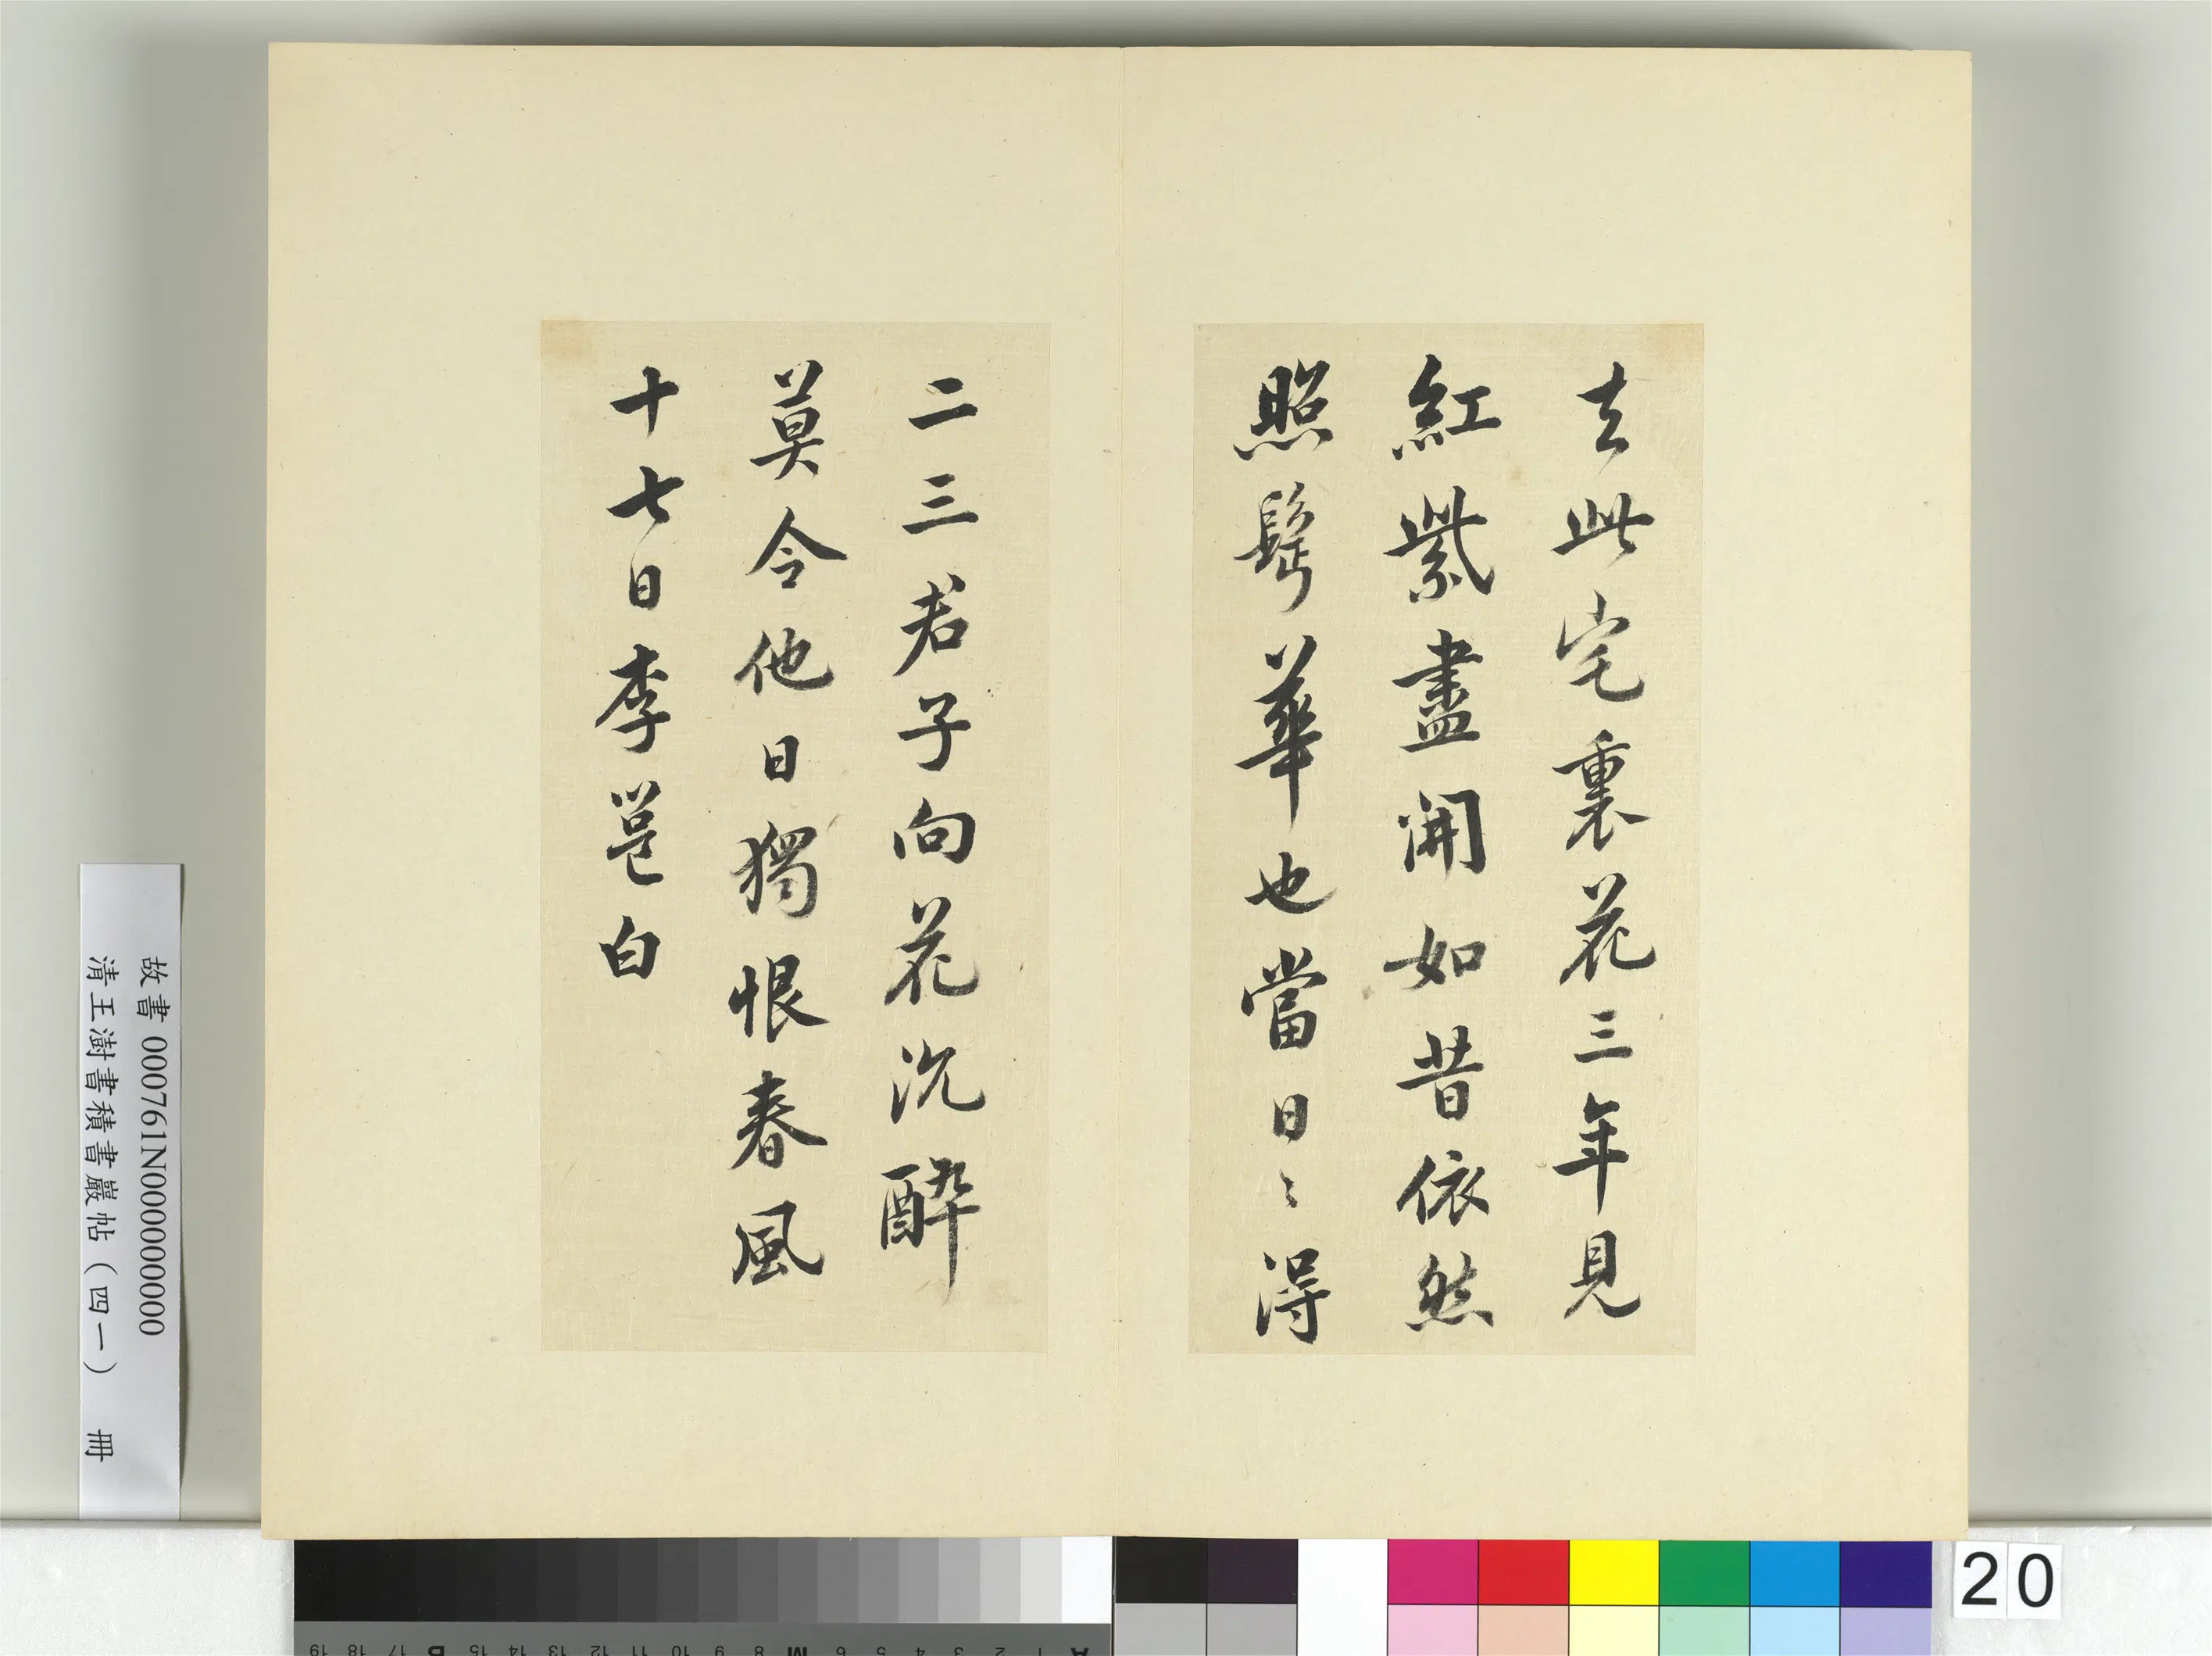 去此宅裏花三年見
紅紫盡開如昔依然
照髩華也當日〻得
二三君子向花沉醉
莫令他日獨恨春風
十七日李邕白
故書 000761N000000000
清王澍書積書巖帖（四一） 冊
20